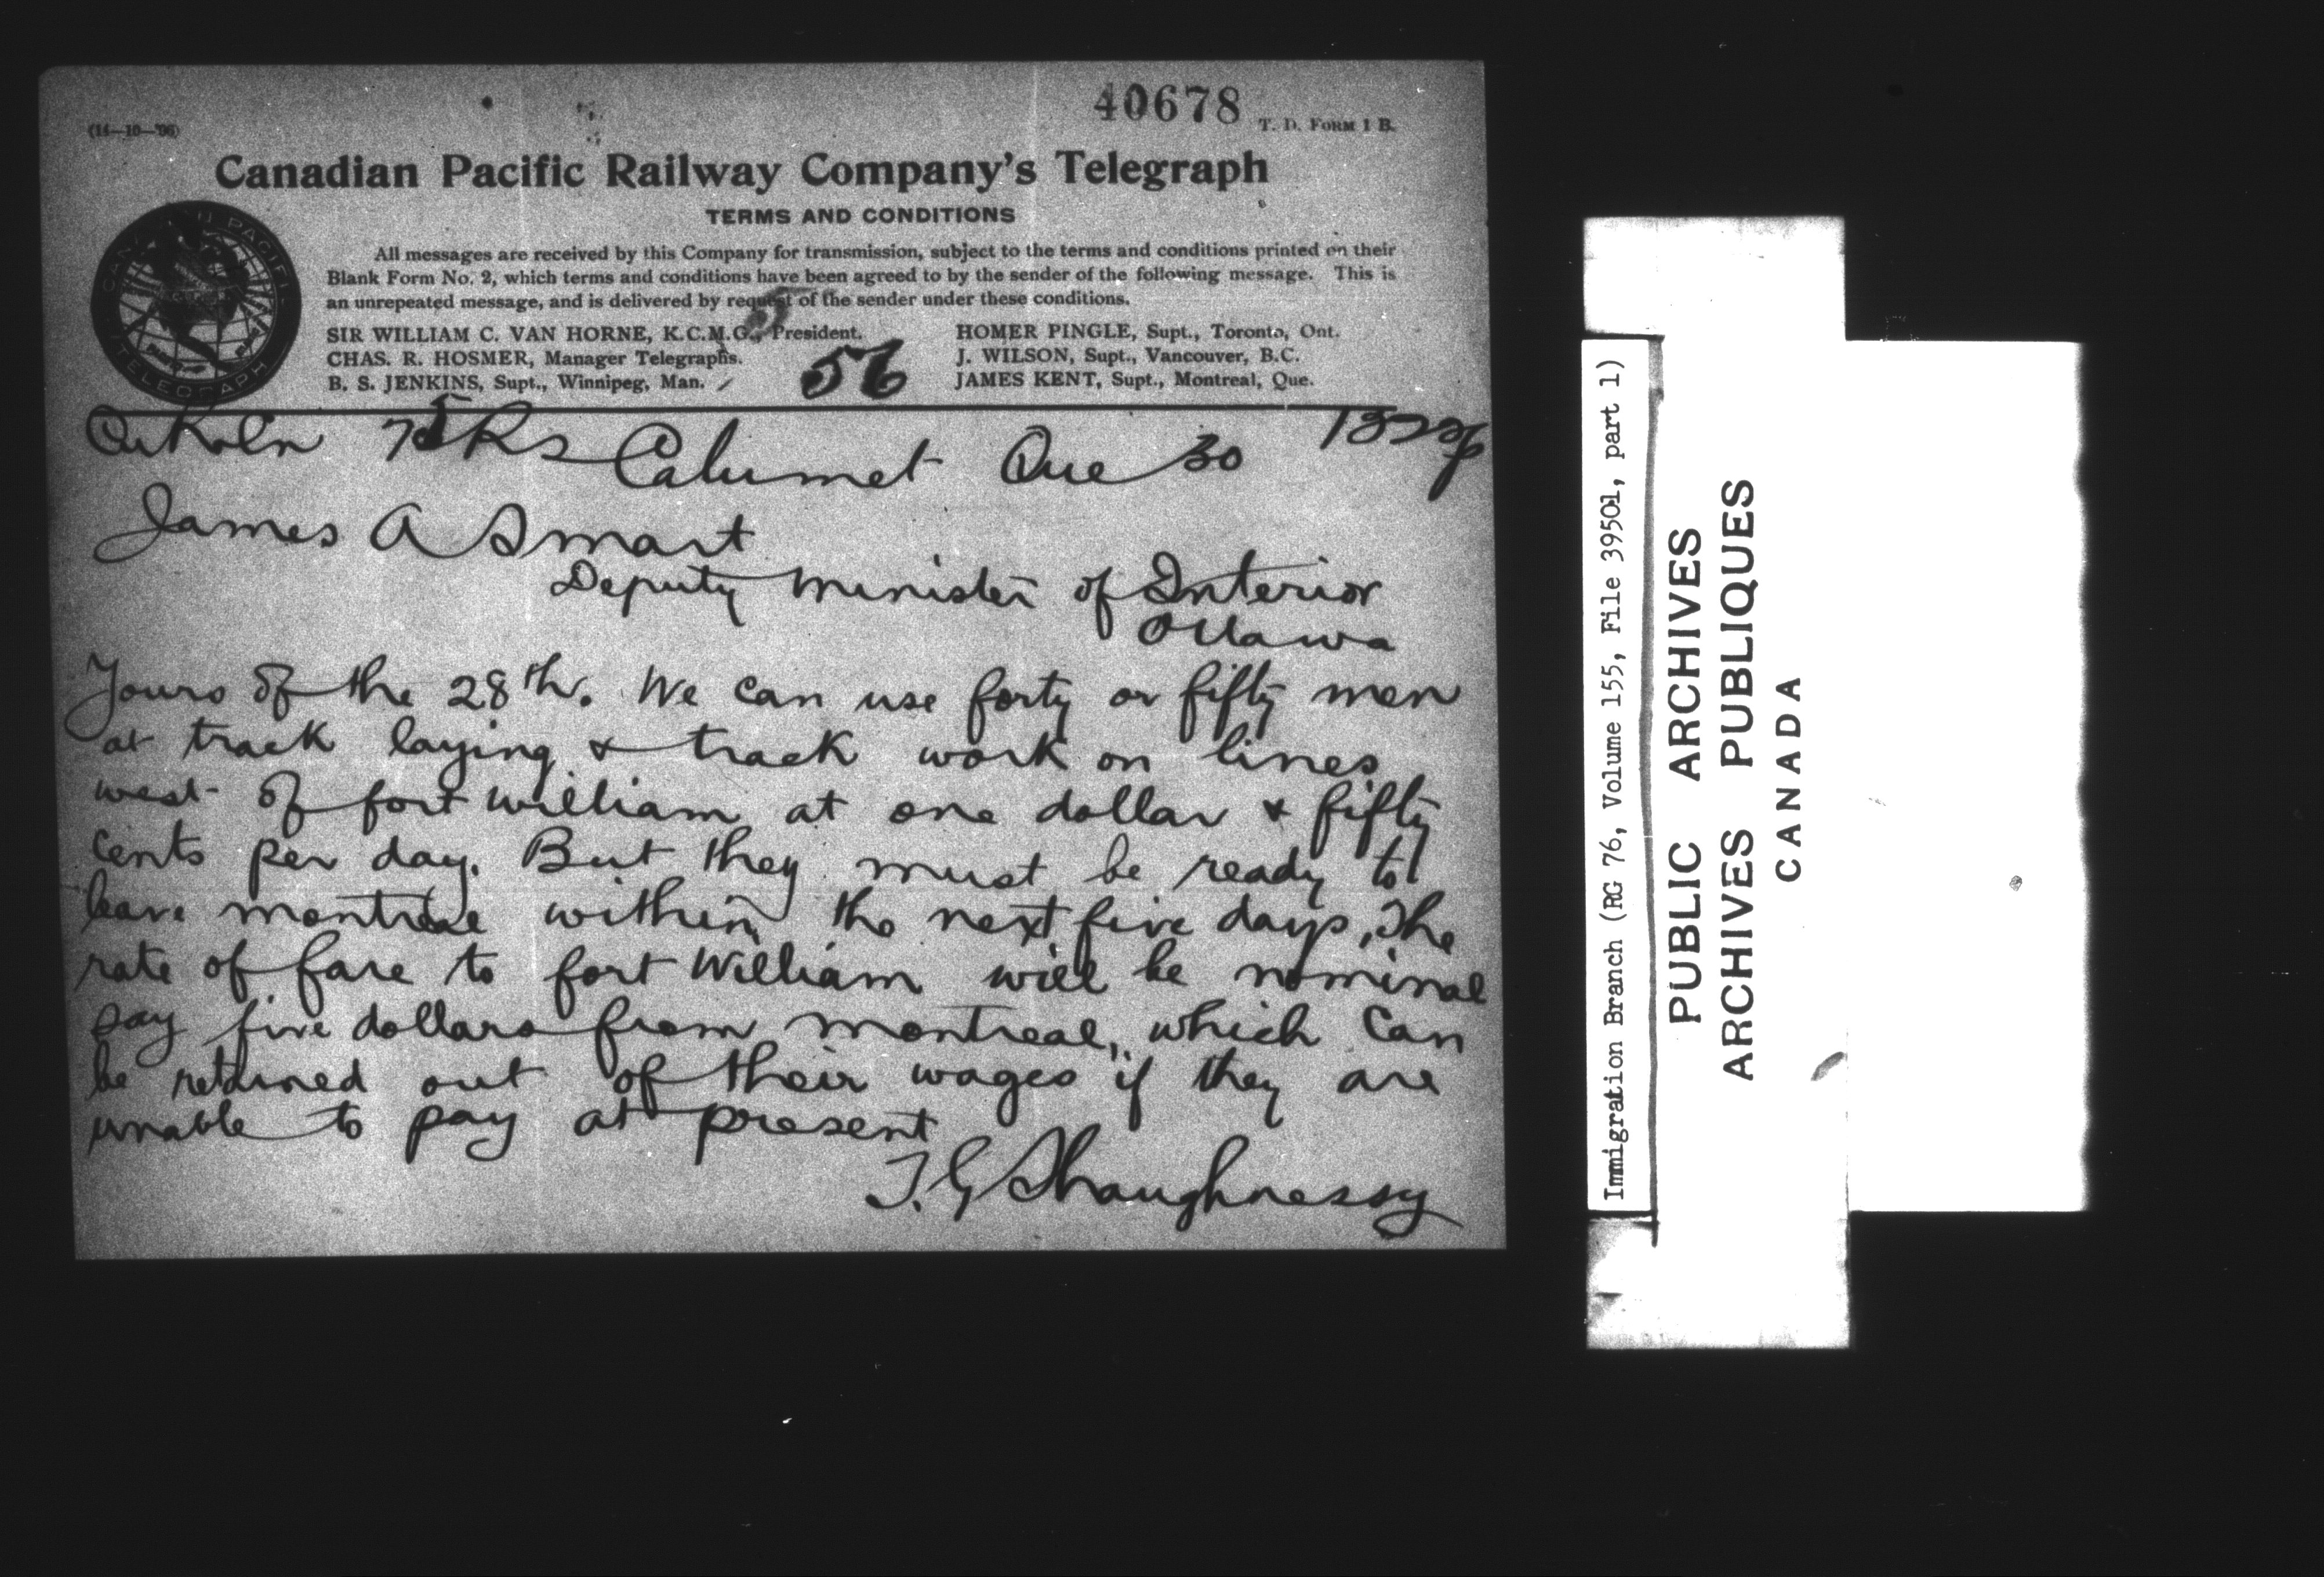 40678
(14—10—'96)
T. D. FORM 1 B.
Canadian Pacific Railway Company's Telegraph
TERMS AND CONDITIONS
All messages are received by this Company for transmission, subject to the terms and conditions printed on their
Blank Form No. 2, which terms and conditions have been agreed to by the sender of the following message. This is
an unrepeated message, and is delivered by request of the sender under these conditions.
SIR WILLIAM C. VAN HORNE, K.C.M.G., President.
CHAS. R. HOSMER, Manager Telegraphs.
B. S. JENKINS, Supt., Winnipeg, Man.
HOMER PINGLE, Supt., Toronto, Ont.
J. WILSON, Supt., Vancouver, B.C.
JAMES KENT, Supt., Montreal, Que.
56
Calumet Que 30
James A Smart
Deputy Minister of Interior
Ottawa
Yours of the 28th. We can use forty or fifty men
at track laying & track work on lines
west of fort william at one dollar & fifty
cents per day. But they must be ready to
leave montreal within the next five days. The
rate of fare to fort William will be nominal
say five dollars from montreal, which can
be retained out of their wages if they are
unable to pay at present
T. G Shaughnessy
Immigration Branch (RG 76, Volume 155, File 39501, part 1)
PUBLIC ARCHIVES
ARCHIVES PUBLIQUES
CANADA